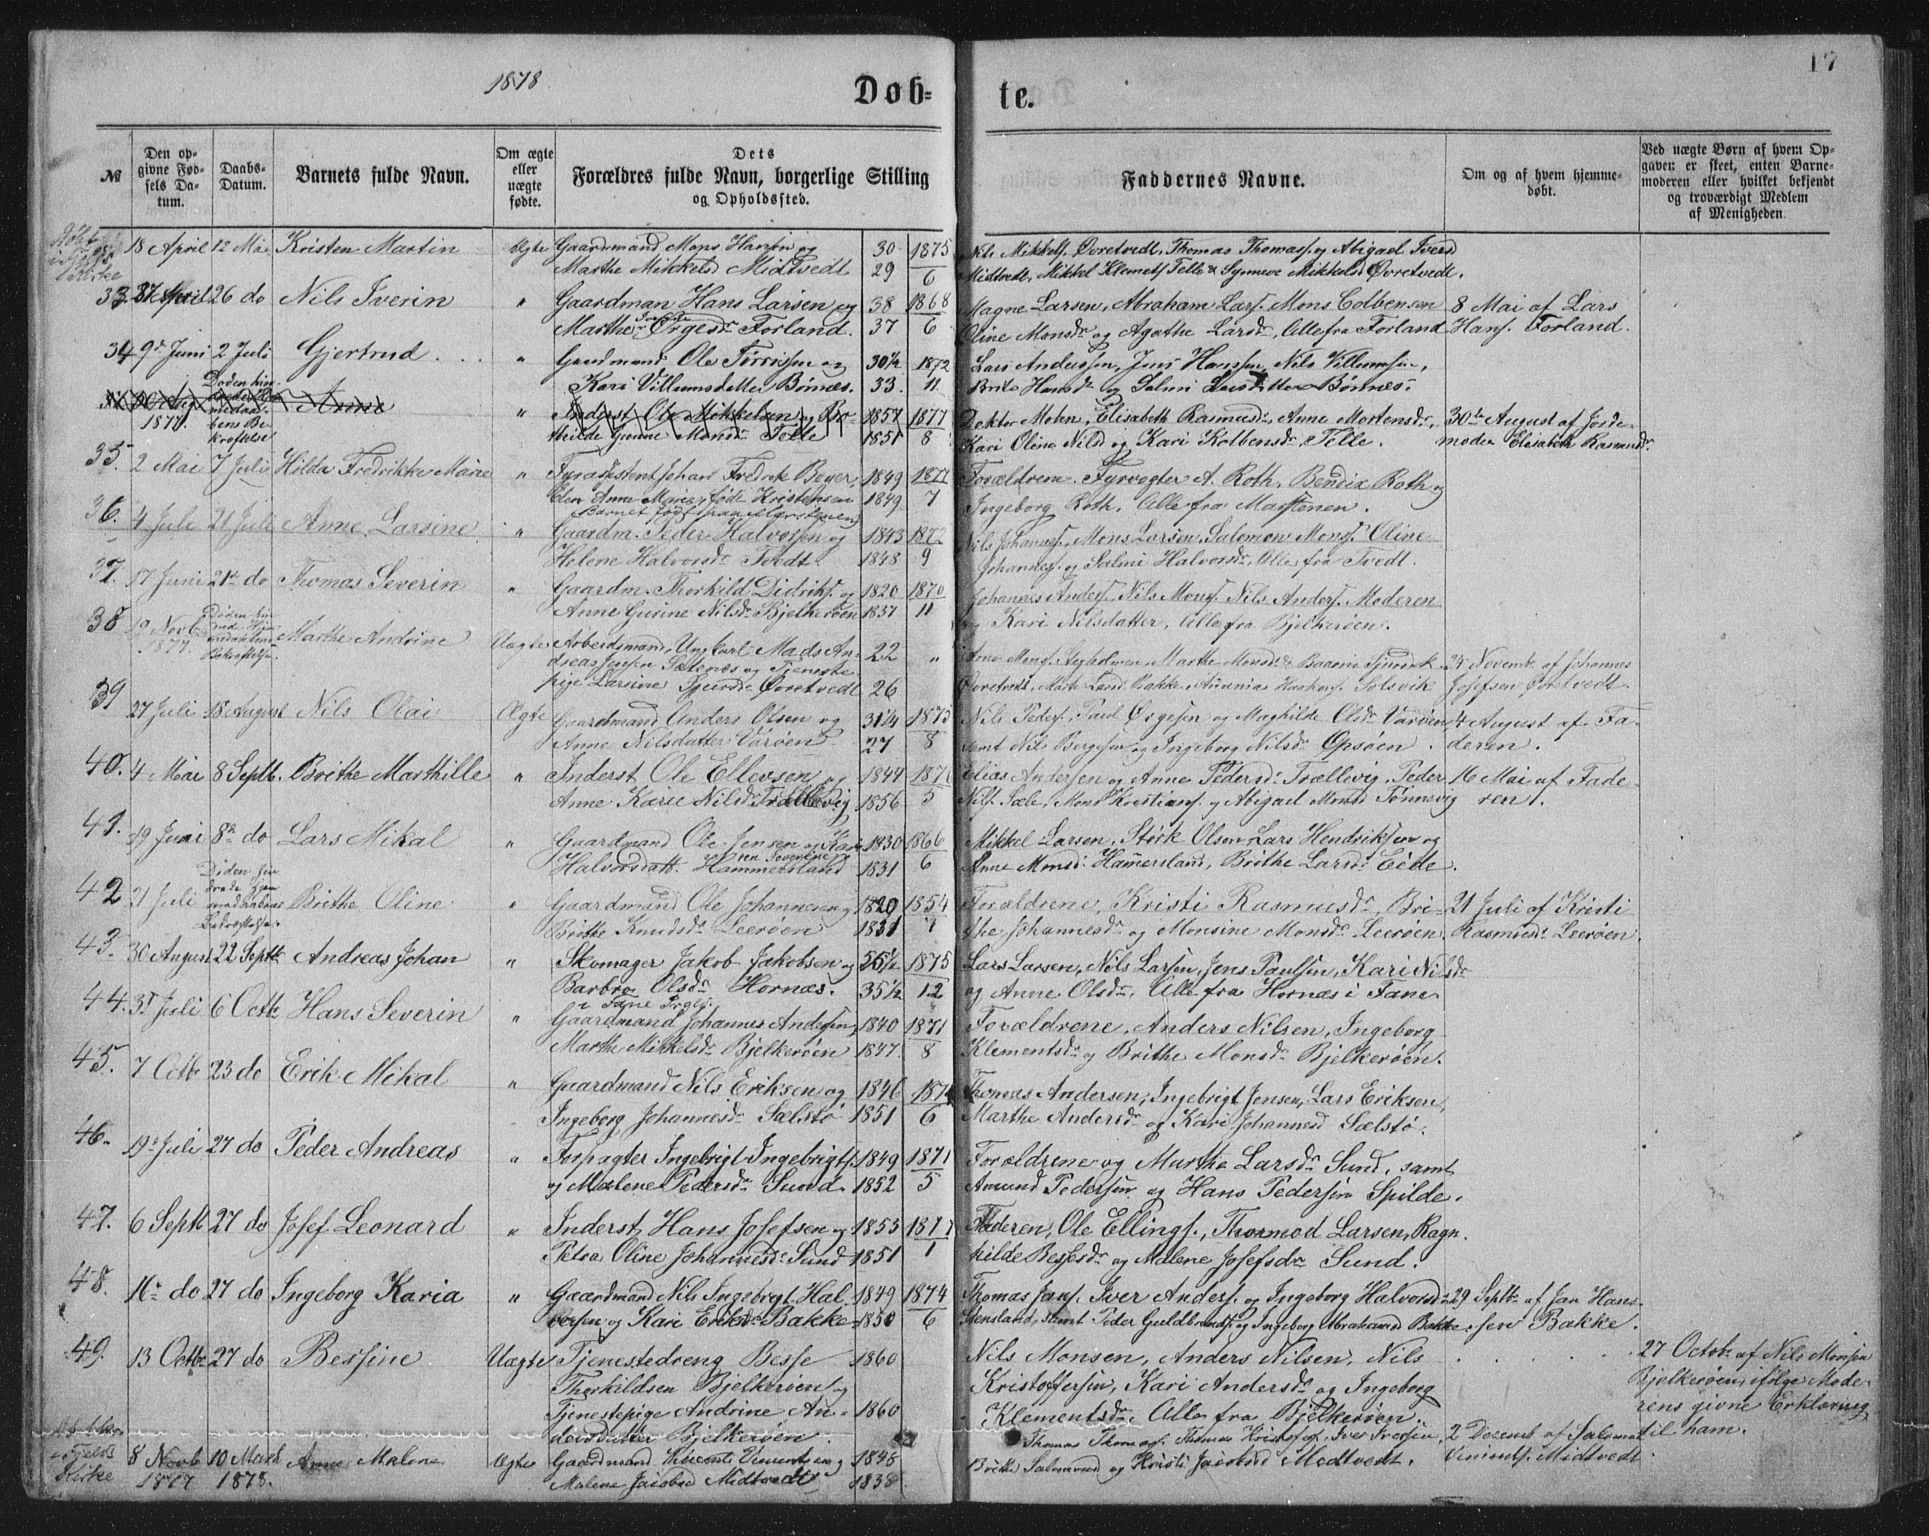 17
1878.
Døb-
te.
№
Den op-
givne Fød-
sels Da-
tum.
Daabs-
Datum.
Barnets fulde Navn.
Om ægte
eller
uægte
fødte.
Dets
Forældres fulde Navn, borgerlige Stilling
og Opholdssted.
Faddernes Navne.
Om og af hvem hjemme-
døbt.
Ved uægte Børn af hvem Op-
gaven er skeet, enten Barne-
moderen eller hvilket bekjendt
og troværdigt Medlem
af Menigheden.
Kirke
18 April 12 Mai Kristen Martin Ægte Gaardmand Mons Hansen og 30 1875
Marthe Mikkelsd Midtvedt 29 6
Nils Mikkels. Øvretvedt, Thomas Thomass. og Abigael Ivers
Midtvedt, Mikkel Klemets. Telle & Synneve Mikkelsd Øvretvedt.
33 27 April 26 do Nils Iverin " Gaardman Hans Larsen og 38 1868
Marthe Ørgesdr Forland. 37 6
Magne Larsen, Abraham Lars. Mons Colbensen
Oline Monsdr og Agathe Larsdr, Alle fra Forland
8 Mai af Lars
Hans. Forland.
34 9de Juni 2 Juli Gjertrud " Gaardmand Ole 30½ 1872
Kari Villumsdatter Børnæs. 33. 11
Lars Andersen, Jens Hanssen, Nils Villumsen,
Brite Hansdr og Salmi Larsdatter Børnæs.
1877. Anne " Inderst Ole Mikkelsen og Bo- 1857 1877
thilde Gunne Monsdr Telle 1851 8
Doktor Mohn, Elisabeth Rasmusdr, Anne Mortensdr,
Kari Oline Nilsd og Kari Kolbensdr Telle.
30te August af Jorde-
moder Elisabeth Rasmusdr
35. 2 Mai 7 Juli Hilda Fredrikke Marie " Fyrassistent Johan Fredrik Beyer, 1849 1877
Elen Anne Marie, føde Kristensen 1849 7
Barnet født paa Marstenen
Forældrene, Fyrvogter A. Roth, Bendix Roth og
Ingeborg Roth. Alle fra Marstenen.
36. 4 Juli 21 Juli Anne Larsine " Gaardm. Peder Halvorsen og 1843 1872
Helene Halvorsdr Tvedt. 1848 9
Nils Johannes. Mons Larsen, Salomon Mons. Oline
Johannes. og Salmi Halvorsdr, Alle fra Tvedt.
37. 17 Juni 21de do Thomas Severin " Gaardm. Thorkild Didriks. og 1820 1870
Anne Gurine Nilsdr Bjelkerøen 1837 11
Johannes Anders. Nils Mons. Nils Anders. Moderen
og Kari Nilsdatter, Alle fra Bjelkerøen.
38 19 Novb 1877. Marthe Andrine Uægte Arbeidsmand, Ungkarl Mads An- 22 "
dreas Jensen og Tjeneste-
pige Larsine Øvretvedt 26
24 Novemb. af Johannes
Josefsen Øvretvedt
39 27 Juli 18 August Nils Olai Ægte Gaardmand Anders Olsen og 31¼ 1875
Anne Nilsdatter Varøen 27 8
Nils Peders. Paul Ørgesen og Maghilde Olsdr Varøen
samt Nils Børgesen og Ingeborg Nilsdr Opsøen.
4 August af Fa-
deren.
40. 4 Mai 8 Septb. Brithe Marthille " Inderst Ole Ellevsen og 1844 1876
Anne Karie Nilsdr Trællevig 1856 5
Elias Andersen og Anne Pedersdr Trællevig, Peder
Nils. Sæle, Mons Kristians. og Abigael Monsd Tønnevig
16 Mai af Fade-
ren.
41. 19 Juni 8de do Lars Mikal " Gaardmand Ole Jensen og Kar- 1830 1866
Halvorsdatt. Hammersland 1831 6
Mikkel Larsen, Størk Olsen, Lars Hendriksen og
Anne Monsd Hamersland, Brithe Larsdr Eide.
42 21 Juli Brithe Oline " Gaardmand Ole Johannesen og 1820 1854
Brithe Knudsdr Leerøen 1831 7
Forældrene, Kristi Rasmusdr, Bri-
the Johannesdr og Monsine Monsdr Leerøen.
21 Juli af Kristi
Rasmusdr Leerøen.
43. 30 August 22 Septb. Andreas Johan " Skomager Jakob Jakobsen og 56½ 1875
Barbro Olsdr Hornæs. 35½ 12
Lars Larsen, Nils Larsen, Jens Paulsen, Kari Nilsdr
og Anne Olsdr, Alle fra Hornæs i Fane
44. 31 Juli 6 Octb. Hans Severin " Gaardmand Johannes Andersen, 1840 1871
Marthe Mikkelsdr Bjelkerøen 1847. 8
Forældrene, Anders Nilsen, Ingeborg
Klementsdr og Brithe Monsdr Bjelkerøen.
45. 7 Octb 23 do Erik Mikal " Gaardmand Nils Eriksen og 1846 187
Ingeborg Johannesdr Sælstø 1851 6
Thomas Andersen, Ingebrigt Jensen, Lars Eriksen,
Marthe Andersdr og Kari Johannesd Sælstø.
46. 19de Juli 27 do Peder Andreas " Forpagter Ingebrigt Ingebrigts. 1849 1871
og Malene Pedersdr Sund. 1852 5
Forældrene og Marthe Larsdr Sund, samt
Amund Pedersen og Hans Pedersen Spilde.
47. 6 Septb 27 do Josef Leonard " Inderst Hans Josefsen og 1853 1877
Petra Oline Johannesdr Sund 1851 1
Faderen, Ole Ellings., Thormod Larsen, Ragn-
hilde Bessesdr og Malene Josefsdr Sund.
48. 16de do 27 do Ingeborg Karia " Gaardmand Nils Ingebrigt Hal- 1849 1874
vorsen og Kari Eriksdr Bakke 1850 6
Thomas Jans. Iver Anders. og Ingeborg Halvorsdr
Stensland, samt Peder Guldbrands. og Ingeborg Abrahamsd Bakke
29 Septb. af Jan Hans-
sen Bakke.
49. 13 Octbr 27 do Bessine Uægte Tjenestedreng Besse 1860
Thorkildsen Bjelkerøen og
Tjenestepige Andrine An- 1860
dersdatter Bjelkerøen.
Nils Monsen, Anders Nilsen, Nils
Kristoffersen, Kari Andersdr og Ingeborg
Klementsdr. Alle fra Bjelkerøen.
27 Octob. af Nils Monsen
Bjelkerøen ifølge Mode-
rens givne Erklæring
til ham.
Kirke
8 Novb 1877 10 Marts 1878. Anne Malene Ægte Gaardmand Vincents Vincentsen og 1848
Malene Jacobsd Midtvedt 1838
Thomas Thomas. Thomas Kristof. og Iver Iversen,
Brithe Salmonsd og Kristi Jacobsd Medtvedt.
2 Decemb af Salomon
Vincents. Midtvedt